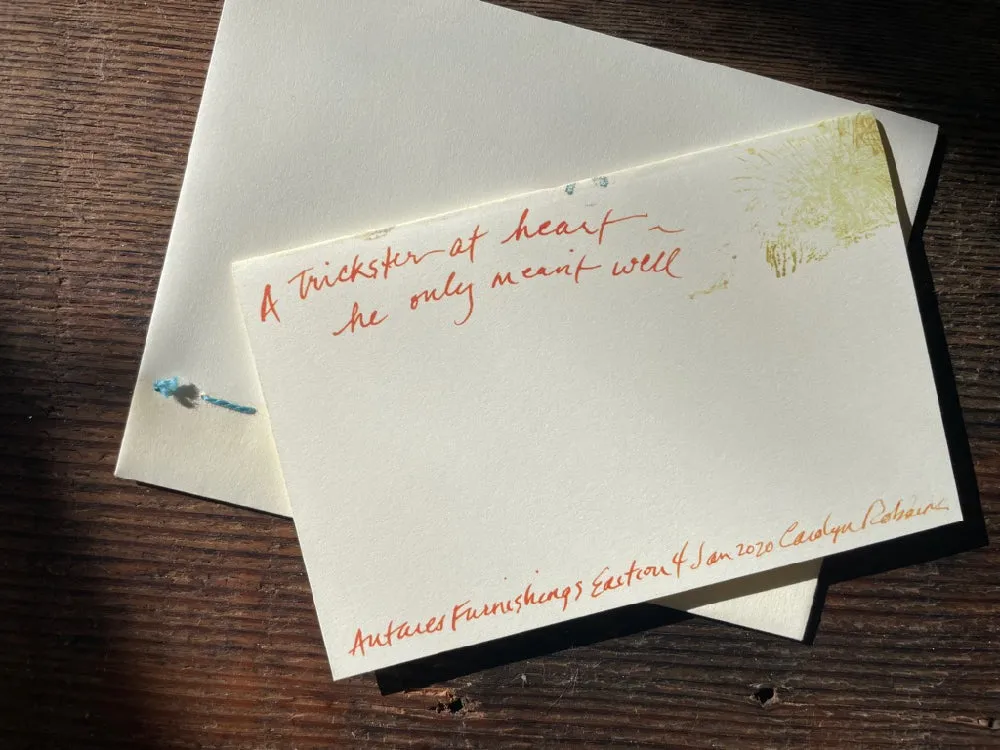 A Trickster at heart ~
he only meant well
Antares Furnishings Edition 4 Jan 2020 Carolyn